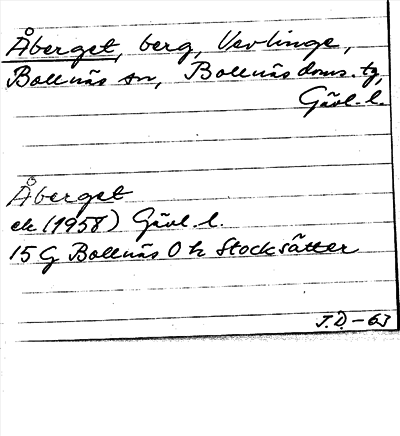 Åberget, berg, Vevlinge,
Bollnäs sn, Bollnäs doms. tg,
Gävl. l.
Åberget
ek (1958) Gävl. l.
15 G Bollnäs O k Stocksätter
J.D. – 63